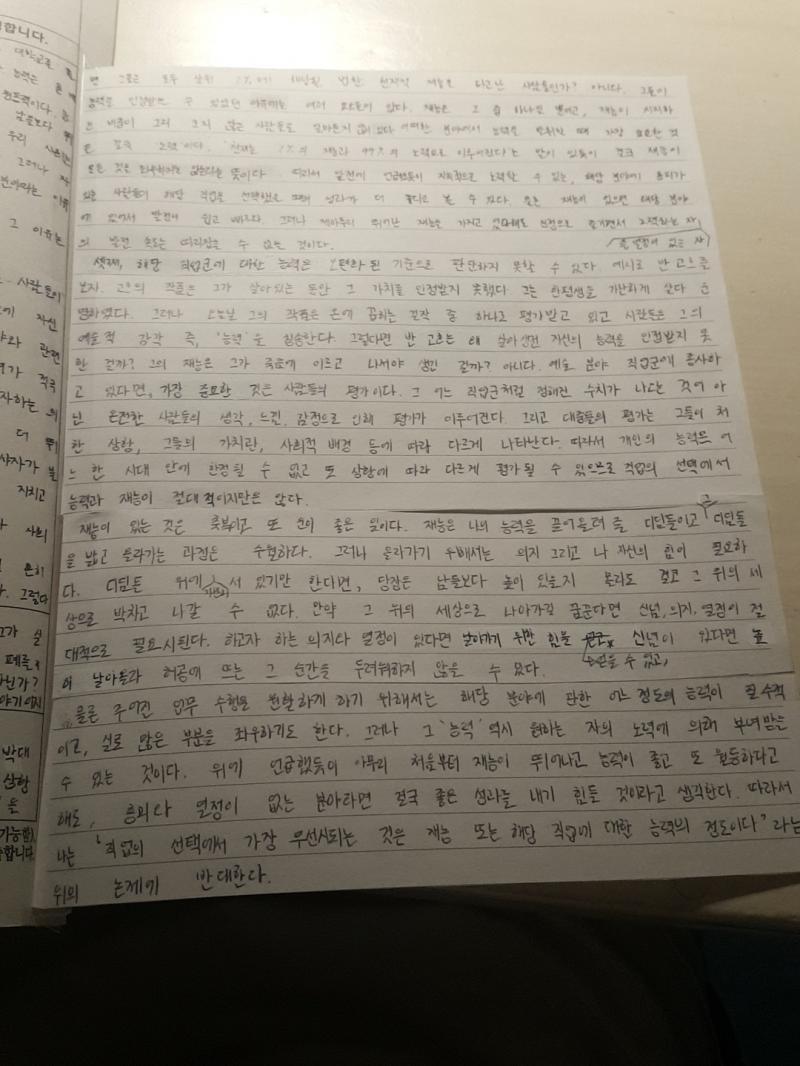 합니다.
면 그들은 모두 상위 1%에 해당될 법한 천재적 재능을 타고난 사람들인가? 아니다. 그들이
능력을 인정받을 수 있었던 이유에는 여러 요소들이 있다. 재능은 그 중 하나일 뿐이고, 재능이 차지하
는 비중이 그리 크지 않은 사람들도 얼마든지 있다. 어떠한 분야에서 능력을 발휘할 때 가장 중요한 것
은 결국 '노력'이다. 천재는 1%의 재능과 99%의 노력으로 이루어진다는 말이 있듯이 결국 재능이
모든 것을 좌우하지는 않는다는 뜻이다. 따라서 앞전에 언급했듯이 지속적으로 노력할 수 있는, 해당 분야에 흥미가
있는 사람들이 해당 직업을 선택했을 때에 성과가 더 좋다고 볼 수 있다. 물론 재능이 있으면 해당 분야
에 있어서 발전이 쉽고 빠르다. 그러나 제아무리 뛰어난 재능을 가지고 있다해도 진정으로 즐기면서 노력하는 자
의 발전 속도는 따라잡을 수 없는 것이다. (즉 열정이 있는 자)
셋째, 해당 직업군에 대한 능력은 보편화된 기준으로 판단하지 못할 수 있다. 예시로 반 고흐를
보자. 고흐의 작품은 그가 살아있는 동안 그 가치를 인정받지 못했다. 그는 한평생을 가난하게 살다 운
명하였다. 그러나 오늘날 그의 작품은 손에 꼽히는 걸작 중 하나로 평가받고 있고 사람들은 그의
예술적 감각 즉, '능력'을 칭송한다. 그렇다면 반 고흐는 왜 살아생전 자신의 능력을 인정받지 못
한 걸까? 그의 재능은 그가 죽음에 이르고 나서야 생긴 걸까? 아니다. 예술 분야 직업군에 종사하
고 있다면, 가장 중요한 것은 사람들의 평가이다. 그 어느 직업군처럼 정해진 수치가 나오는 것이 아
닌 온전한 사람들의 생각, 느낌, 감정으로 인해 평가가 이루어진다. 그리고 대중들의 평가는 그들이 처
한 상황, 그들의 가치관, 사회적 배경 등에 따라 다르게 나타난다. 따라서 개인의 능력은 어
느 한 시대 안에 한정될 수 없고 또 상황에 따라 다르게 평가될 수 있으므로 직업의 선택에서
능력과 재능이 절대적이지만은 않다.
재능이 있는 것은 축복이고 또 운이 좋은 일이다. 재능은 나의 능력을 끌어올려 줄 디딤돌이고 그 디딤돌
을 밟고 올라가는 과정은 수월하다. 그러나 올라가기 위해서는 의지 그리고 나 자신의 힘이 필요하
다. 디딤돌 위에 서 있기만 한다면, 당장은 남들보다 높이 있을지 몰라도 결코 그 위의 세
상으로 박차고 나갈 수 없다. 만약 그 위의 세상으로 나아가길 꿈꾼다면 신념, 의지, 열정이 절
대적으로 필요시된다. 하고자 하는 의지와 열정이 있다면 날아가기 위한 힘을 얻을 수 있고, 신념이 있다면 높
이 날아올라 허공에 뜨는 그 순간을 두려워하지 않을 수 있다.
물론 주어진 임무 수행을 원활하게 하기 위해서는 해당 분야에 관한 어느 정도의 능력이 필수적
이고, 실로 많은 부분을 좌우하기도 한다. 그러나 그 '능력' 역시 원하는 자의 노력에 의해 부여받을
수 있는 것이다. 위에 언급했듯이 아무리 처음부터 재능이 뛰어나고 능력이 좋고 또 월등하다고
해도, 흥미와 열정이 없는 분야라면 결국 좋은 성과를 내기 힘들 것이라고 생각한다. 따라서
나는 '직업의 선택에서 가장 우선시되는 것은 재능 또는 해당 직업에 대한 능력의 정도이다' 라는
위의 논제에 반대한다.